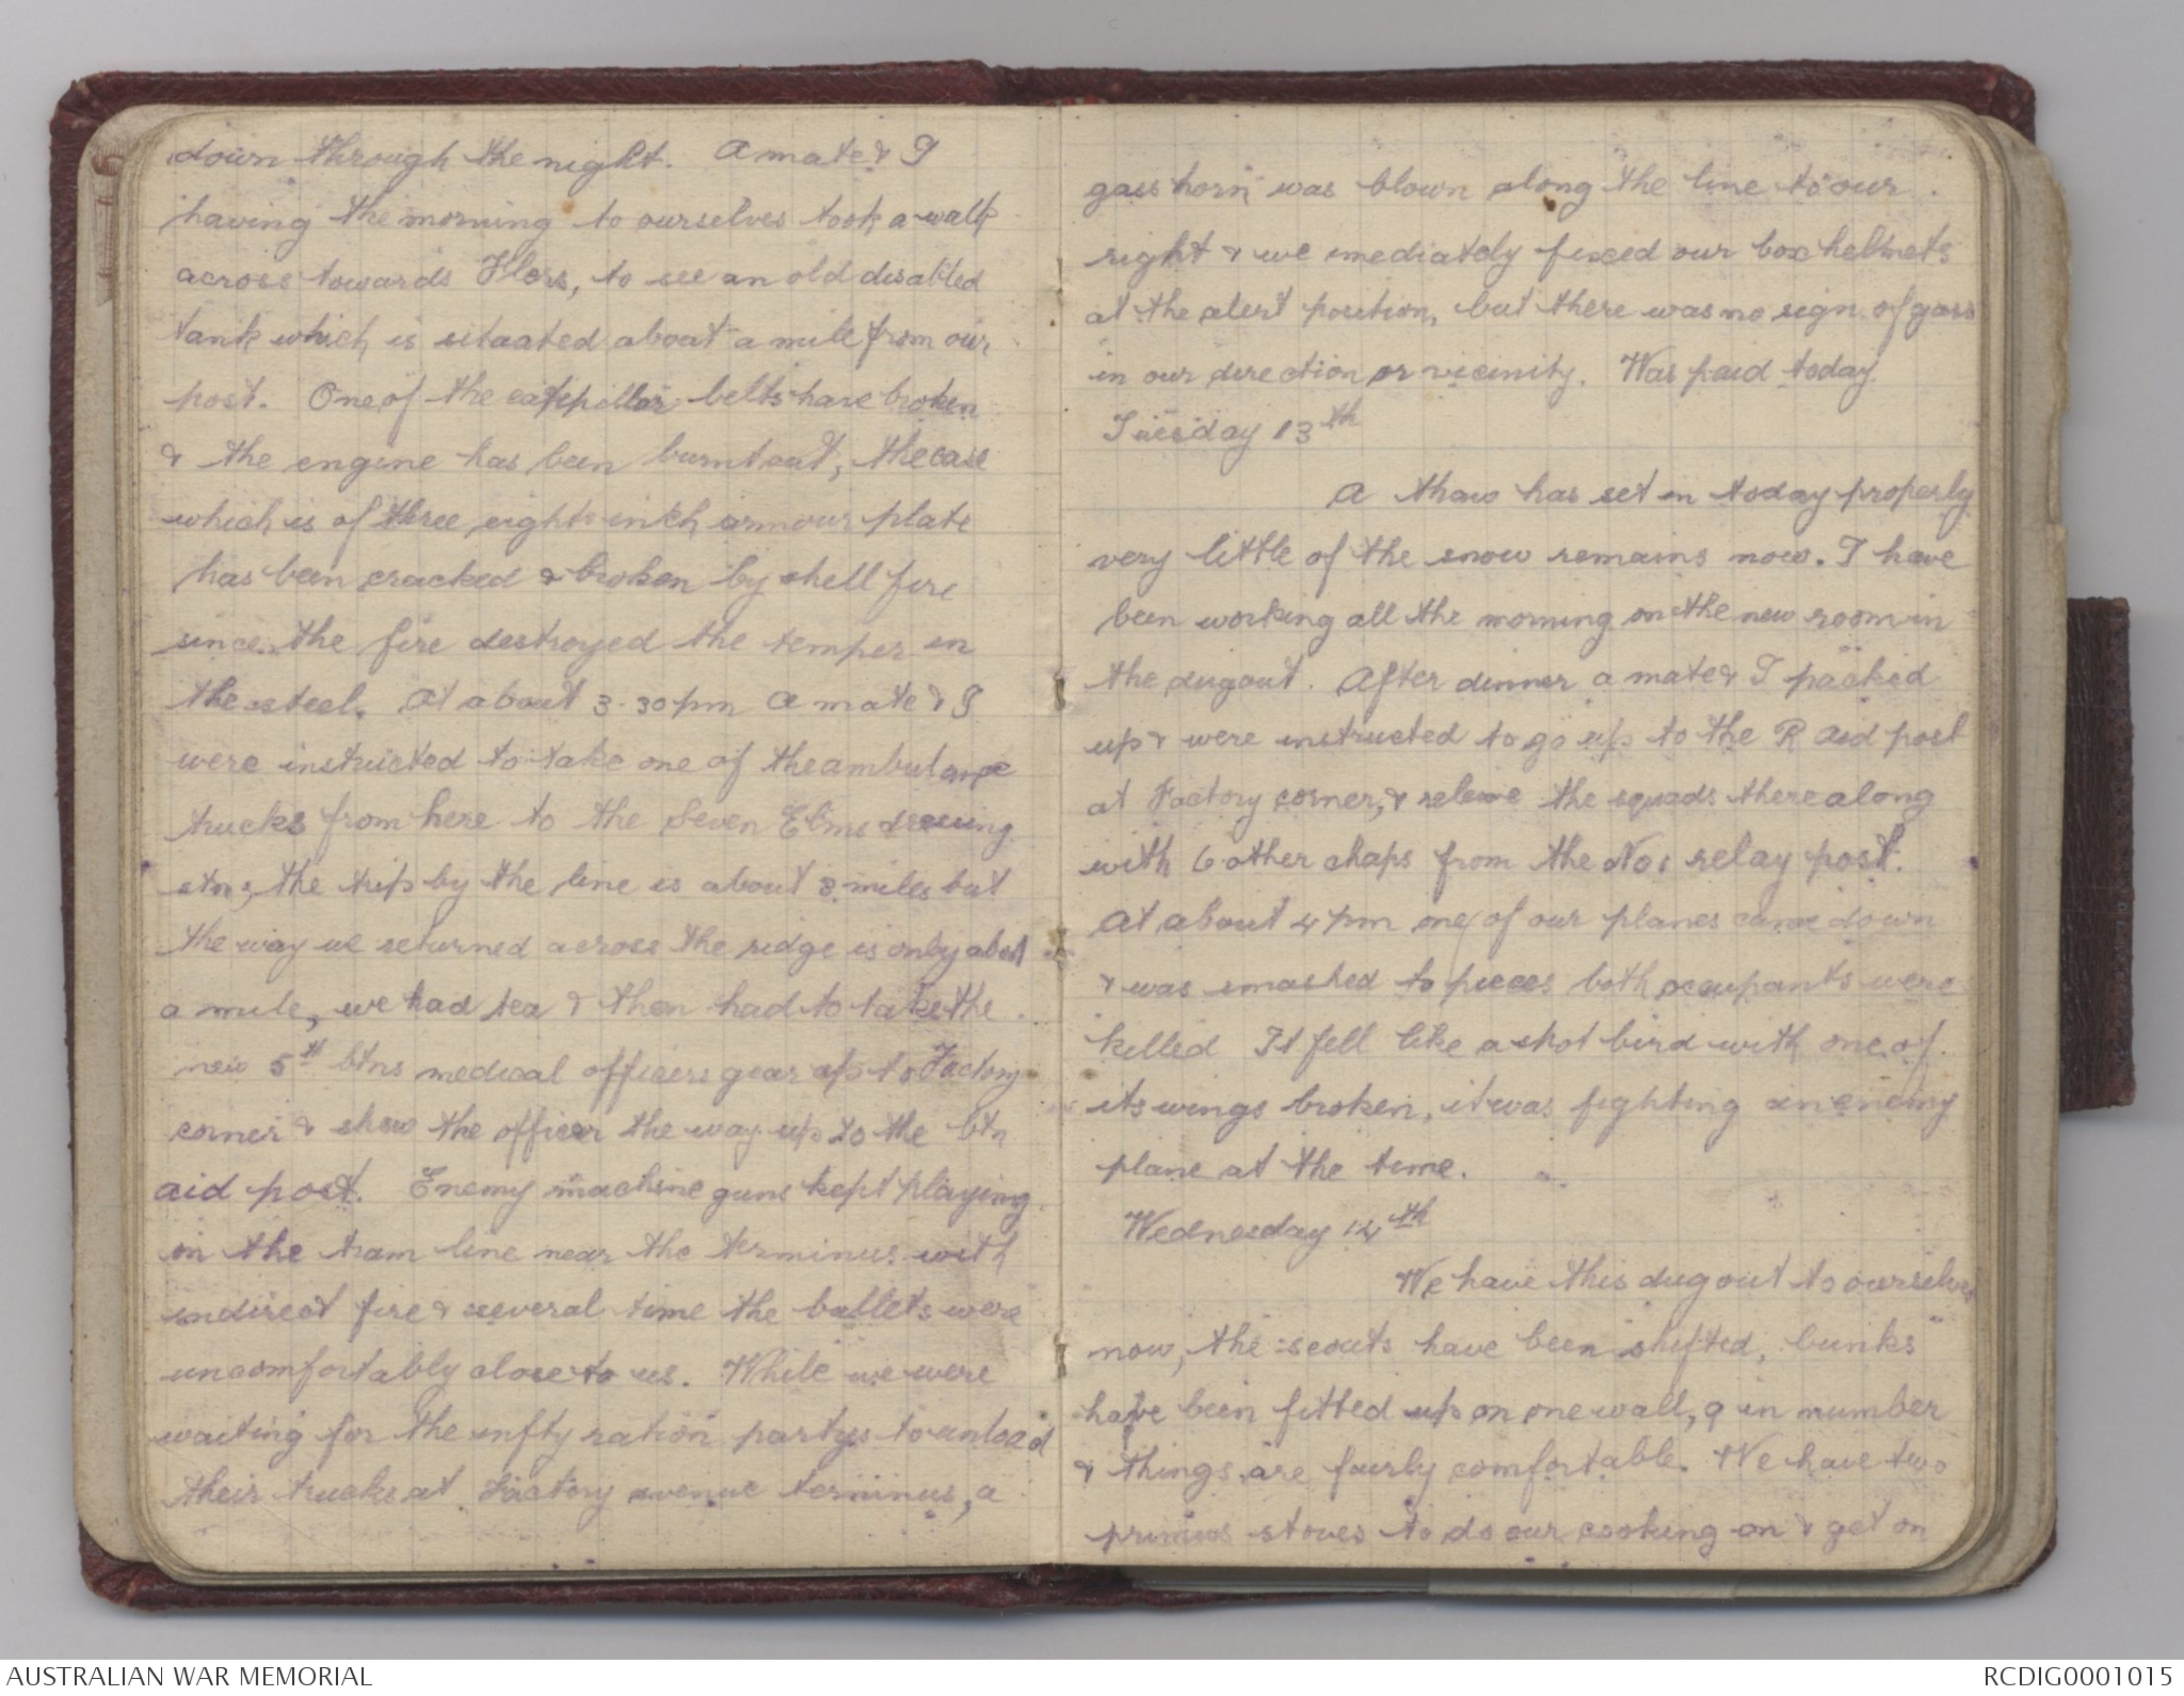 down through the night. A mate & I
having the morning to ourselves took a walk
across towards Flers, to see an old disabled
tank which is sitaated about a mile from our
post. One of the catepillar belts have broken
& the engine has been burnt out, the case
which is of three eights inch armour plate
has been cracked & broken by shell fire
since the fire destroyed the temper in
the steel. At about 3.30 pm A mate & I
were instructed to take one of the ambulance
trucks from here to the Seven Elms dressing
stns, the trip by the line is about 3 miles but
the way we returned across the ridge is only abot
a mile, we had tea & then had to take the
new 5th btns medical officers gear up to Factory
corner & show the officer the way up to the btn
aid post. Enemy machine guns kept playing
on the tram line near the terminus with
indirect fire & several time the bullets were
uncomfortably close to us. While we were
waiting for the infty ration partys to unload
their trucks at Factory avenue terminus, a
gass horn was blown along the line to our
right & we imediately fixed our box helmets
at the alert position, but there was no sign of gass
in our direction or vicinity. Was paid today.
Tuesday 13th
A thaw has set in today properly
very little of the snow remains now. I have
been working all the morning on the new room in
the dugout. After dinner a mate & I packed
up & were instructed to go up to the R Aid post
at Factory corner, & releive the squads there along
with 6 other chaps from the No 1 relay post.
At about 4 pm one of our planes came down
& was smashed to pieces both occupants were
killed It fell like a shot bird with one of
its wings broken, it was fighting an enemy
plane at the time.
Wednesday 14th
We have this dugout to ourselves
now, the scouts have been shifted, bunks
have been fitted up on one wall, 9 in number
& things are fairly comfortable. We have two
primus stoves to do our cooking on & get on
AUSTRALIAN WAR MEMORIAL
RCDIG0001015